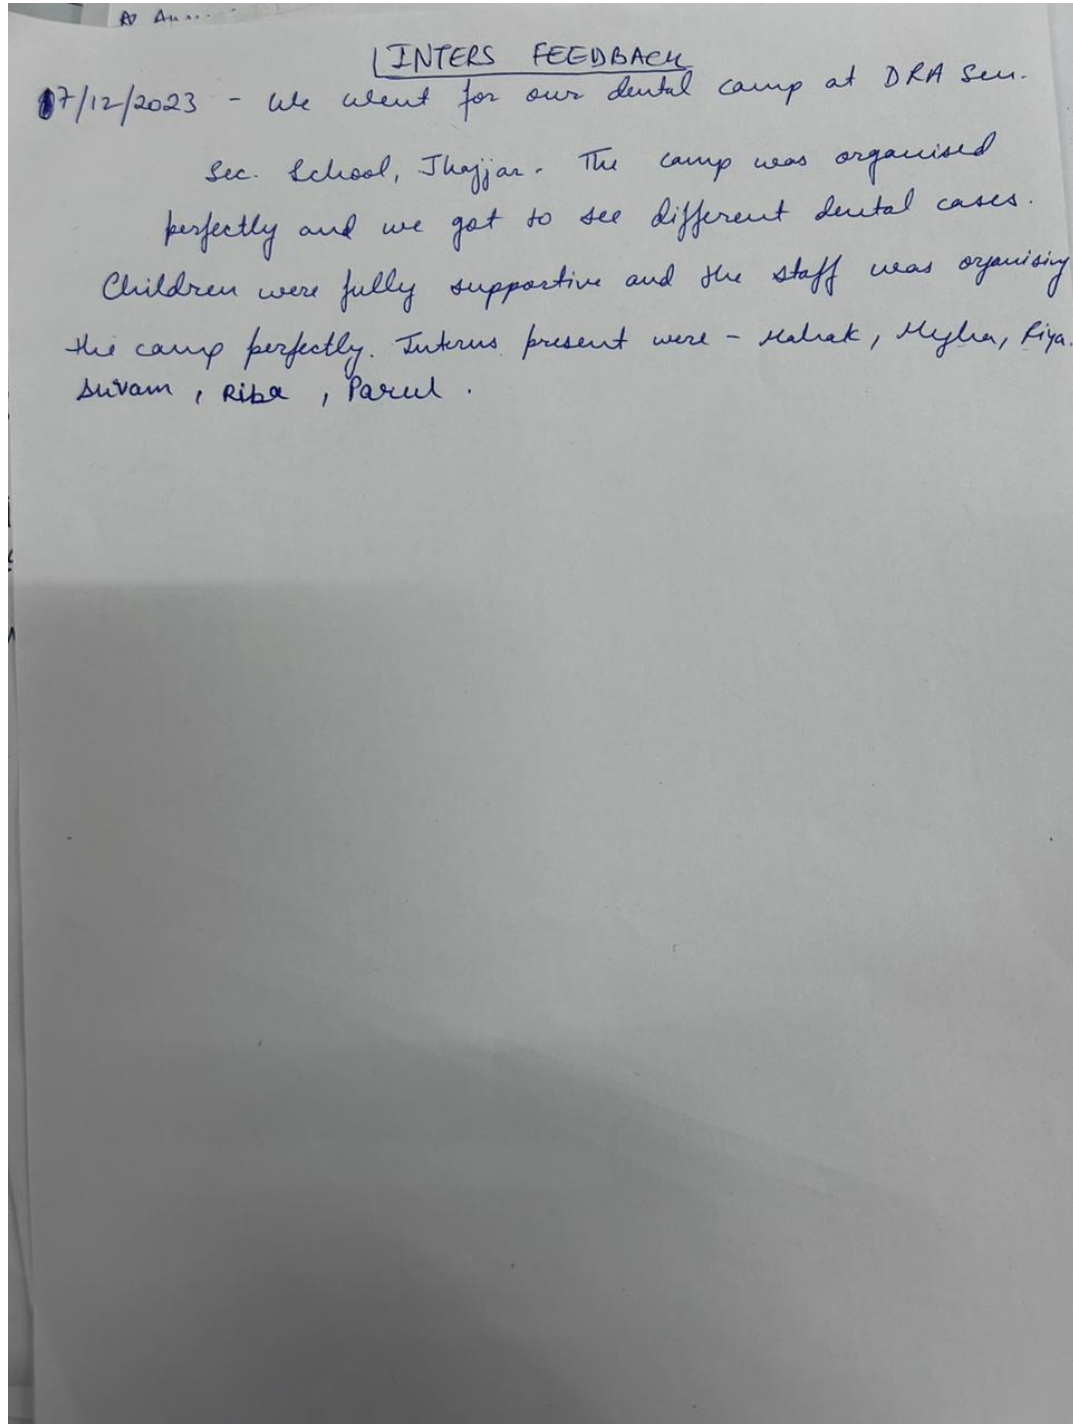 INTERS FEEDBACK
7/12/2023 - We went for our dental camp at DRA Sen.
Sec. School, Jhajjar. The camp was organised
perfectly and we got to see different dental cases.
Children were fully supportive and the staff was organising
the camp perfectly. Interns present were - Mahak, Megha, Riya.
Parul.